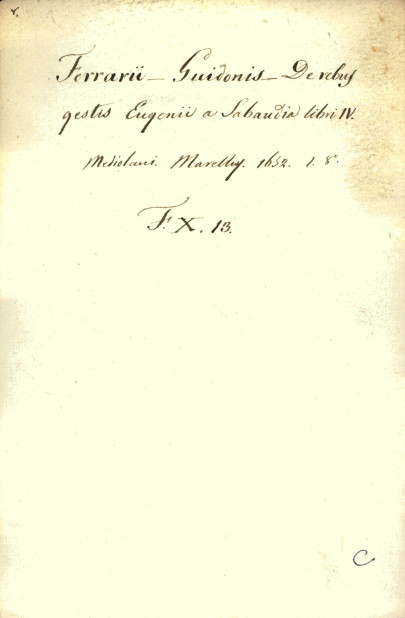 r.
Ferrarii – Guidonis – De rebus
gestis Eugenii a Sabaudia libri IV.
Mediolani. Marellus. 1652. 1. 8.°
F. X. 13.
C